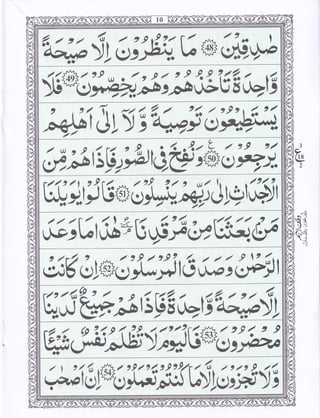 10
صٰدِقِيْنَ ﴿48﴾ مَا يَنْظُرُوْنَ اِلَّا صَيْحَةً
وَّاحِدَةً تَاْخُذُهُمْ وَهُمْ يَخِصِّمُوْنَ ﴿49﴾ فَلَا
يَسْتَطِيْعُوْنَ تَوْصِيَةً وَّلَاۤ اِلٰٓى اَهْلِهِمْ
يَرْجِعُوْنَ ﴿50﴾ وَنُفِخَ فِى الصُّوْرِ فَاِذَا هُمْ مِّنَ
الْاَجْدَاثِ اِلٰى رَبِّهِمْ يَنْسِلُوْنَ ﴿51﴾ قَالُوْا يٰوَيْلَنَا
مَنْۢ بَعَثَنَا مِنْ مَّرْقَدِنَا هٰذَا مَا وَعَدَ
الرَّحْمٰنُ وَصَدَقَ الْمُرْسَلُوْنَ ﴿52﴾ اِنْ كَانَتْ
اِلَّا صَيْحَةً وَّاحِدَةً فَاِذَا هُمْ جَمِيْعٌ لَّدَيْنَا
مُحْضَرُوْنَ ﴿53﴾ فَالْيَوْمَ لَا تُظْلَمُ نَفْسٌ شَيْـًٔا
وَّلَا تُجْزَوْنَ اِلَّا مَا كُنْتُمْ تَعْمَلُوْنَ ﴿54﴾ اِنَّ اَصْحٰبَ